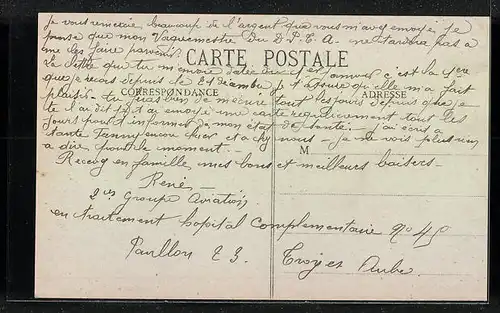 je vous remercie beaucoup de l'argent que vous m'avez envoyé je
pense que mon Vaguemestre du D.P.E.A. ne tardera pas a
me les faire parvenir.
CARTE POSTALE
La lettre que tu m'envoie datée du 1er Janvier c'est la 1ere
que je recois depuis le 24 décembre, je t'assure qu'elle m'a fait
CORRESPONDANCE
ADRESSE
plaisir. tous les jours depuis que je
te l'ai dit je t'ai envoyé une carte regulièrement tous les
jours pour t'informer de mon état de santé. J'ai écris a
tante Fanny encore hier et a chy nous. je ne vois plus rien
a dire pour le moment.
M
Recevez en famille mes bons et meilleurs baisers.
René
2e Groupe Aviation
en traitement hopital Complementaire No 45
Pavillon 23.
Troyes Aube